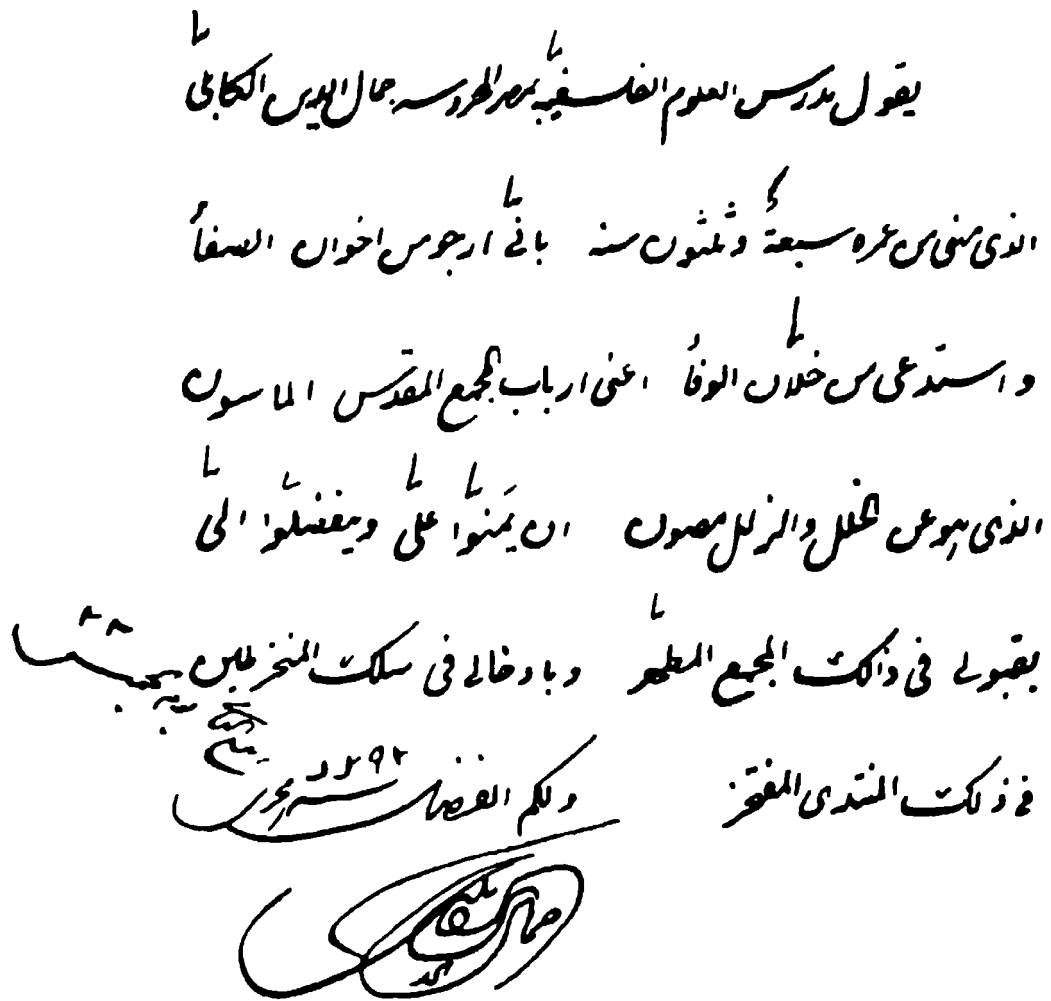 يقول مدرس العلوم الفلسفية بمصر المحروسه جمال الدين الكابلي
الذى مضى من عمره سبعة وثلثون سنه بانى ارجو من اخوان الصفأ
واستدعى من خلان الوفأ اعنى ارباب المجمع المقدس الماسون
الذى هو عن الخلل والزلل مصون ان يَمنوا على ويتفضلوا الى
بقبولى فى ذالك المجمع المطهر وبادخالى فى سلك المنخرطين
فى ذلك المنتدى المفتخر ولكم الفضل
١٢٩٢
جمال